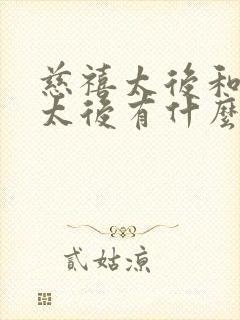 慈禧太後和
太後有什麼
貳姑涼